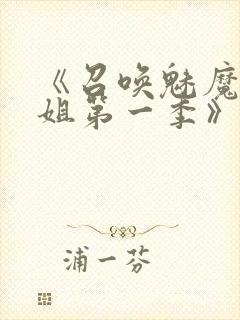 《召唤魅魔
姐第一季》
浦一芬